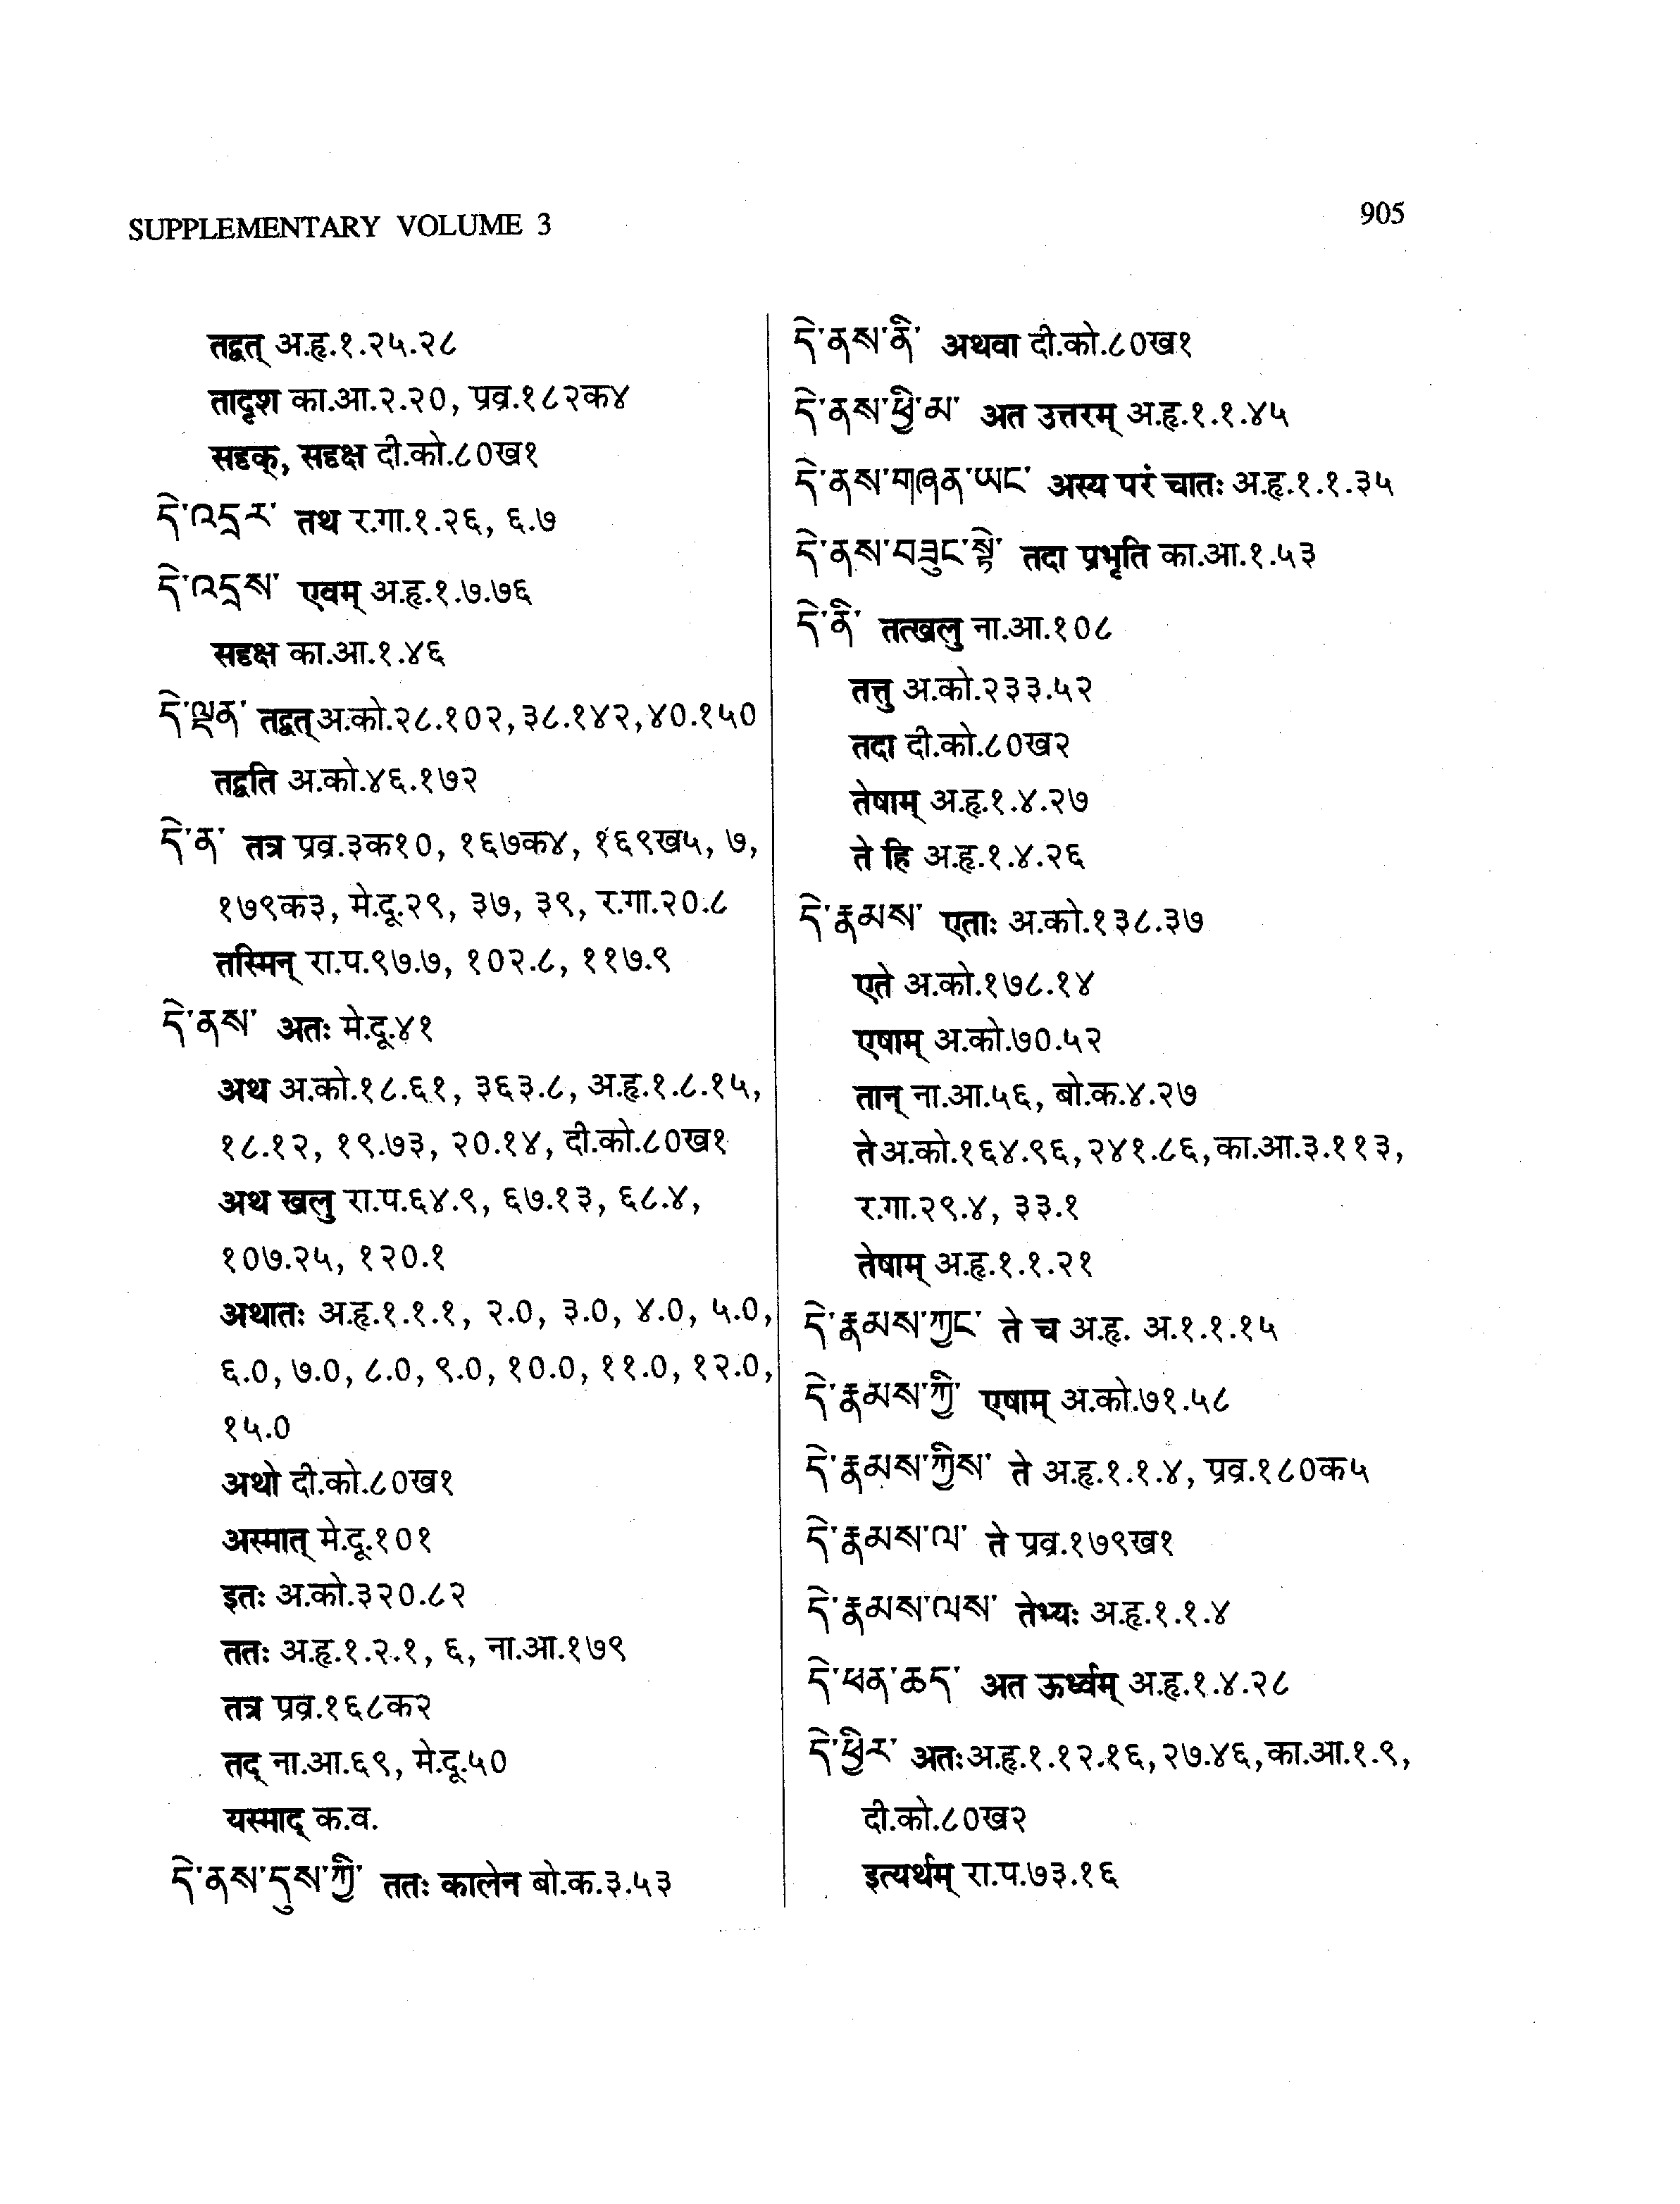 SUPPLEMENTARY VOLUME 3
905
तद्वत् अ.हृ.१.२५.२८
तादृश का.आ.२.२०, प्रव्र.१८२क४
सदृक्, सदृक्ष दी.को.८०ख१
དེ་འདྲར་ तथ र.गा.१.२६, ६.७
དེ་འདྲས་ एवम् अ.हृ.१.७.७६
सदृक्ष का.आ.१.४६
དེ་ལྡན་ तद्वत् अ.को.२८.१०२,३८.१४२,४०.१५०
तद्वति अ.को.४६.१७२
དེ་ན་ तत्र प्रव्र.३क१०, १६७क४, १६९ख५, ७,
१७९क३, मे.दू.२९, ३७, ३९, र.गा.२०.८
तस्मिन् रा.प.९७.७, १०२.८, ११७.९
དེ་ནས་ अतः मे.दू.४१
अथ अ.को.१८.६१, ३६३.८, अ.हृ.१.८.१५,
१८.१२, १९.७३, २०.१४, दी.को.८०ख१
अथ खलु रा.प.६४.९, ६७.१३, ६८.४,
१०७.२५, १२०.१
अथातः अ.हृ.१.१.१, २.०, ३.०, ४.०, ५.०,
६.०, ७.०, ८.०, ९.०, १०.०, ११.०, १२.०,
१५.०
अथो दी.को.८०ख१
अस्मात् मे.दू.१०१
इतः अ.को.३२०.८२
ततः अ.हृ.१.२.१, ६, ना.आ.१७९
तत्र प्रव्र.१६८क२
तद् ना.आ.६९, मे.दू.५०
यस्माद् क.व.
དེ་ནས་དུས་ཀྱི་ ततः कालेन बो.क.३.५३
དེ་ནས་ནི་ अथवा दी.को.८०ख१
དེ་ནས་ཕྱི་མ་ अत उत्तरम् अ.हृ.१.१.४५
དེ་ནས་གཞན་ཡང་ अस्य परं चातः अ.हृ.१.१.३५
དེ་ནས་བཟུང་སྟེ་ तदा प्रभृति का.आ.१.५३
དེ་ནི་ तत्खलु ना.आ.१०८
तत्तु अ.को.२३३.५२
तदा दी.को.८०ख२
तेषाम् अ.हृ.१.४.२७
ते हि अ.हृ.१.४.२६
དེ་རྣམས་ एताः अ.को.१३८.३७
एते अ.को.१७८.१४
एषाम् अ.को.७०.५२
तान् ना.आ.५६, बो.क.४.२७
ते अ.को.१६४.९६,२४१.८६,का.आ.३.११३,
र.गा.२९.४, ३३.१
तेषाम् अ.हृ.१.१.२१
དེ་རྣམས་ཀྱང་ ते च अ.हृ. अ.१.१.१५
དེ་རྣམས་ཀྱི་ एषाम् अ.को.७१.५८
དེ་རྣམས་ཀྱིས་ ते अ.हृ.१.१.४, प्रव्र.१८०क५
དེ་རྣམས་ལ་ ते प्रव्र.१७९ख१
དེ་རྣམས་ལས་ तेभ्यः अ.हृ.१.१.४
དེ་ཕན་ཆད་ अत ऊर्ध्वम् अ.हृ.१.४.२८
དེ་ཕྱིར་ अतः अ.हृ.१.१२.१६,२७.४६,का.आ.१.९,
दी.को.८०ख२
इत्यर्थम् रा.प.७३.१६